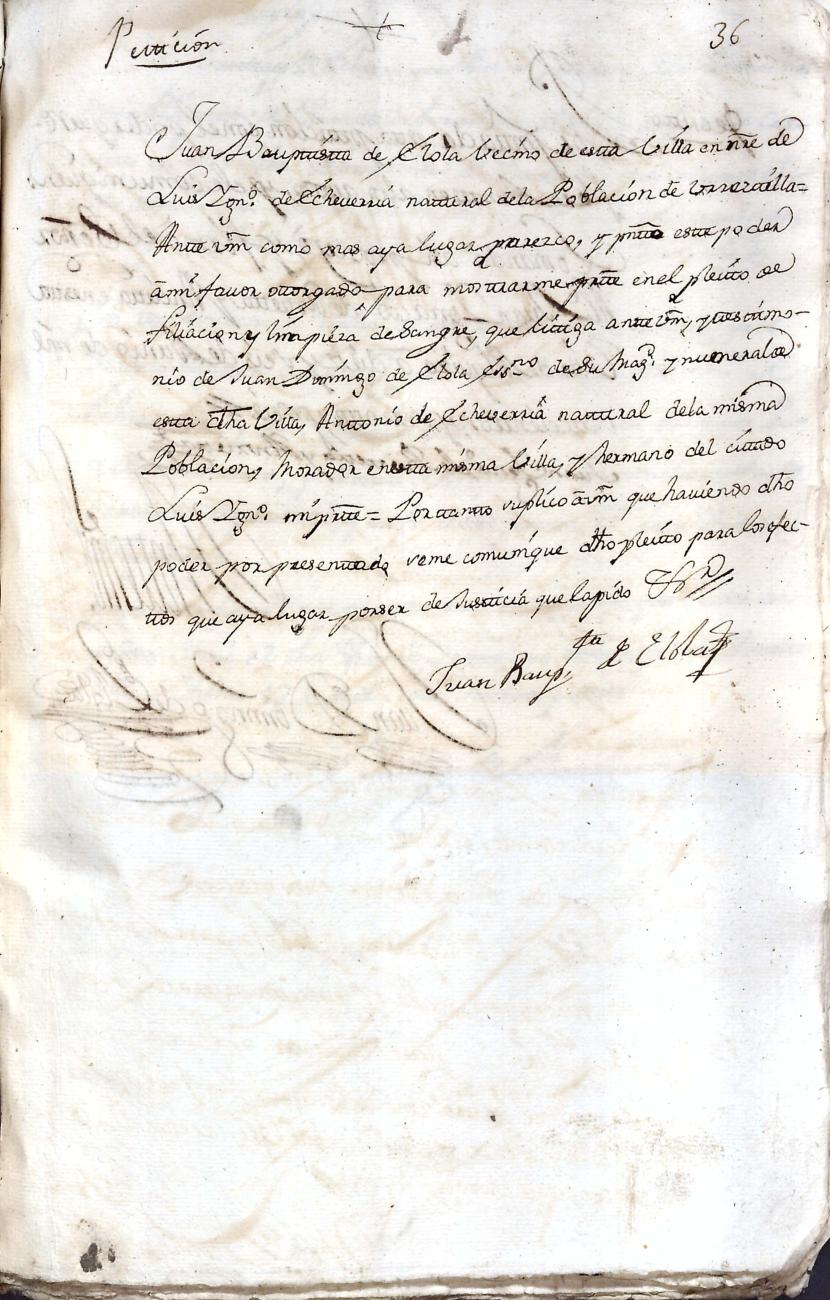 Petticion
36
Juan Bauptistta de Elola Vecino de estta Villa en nre de
Luis Ygnº. de Echeverria nattural dela Poblacion de Urrezttilla=
Antte vm como mas aya lugar parezco, y pntto estte poder
âmi favor ottorgado para mosttrarme partte enel pleitto de
filiacion y limpieza de Sangre, que littiga antte vm, y ttesttimo-
nio de Juan Domingo de Elola Essno de Su Magd. y numeral de
estta dha Villa, Anttonio de Echeverria nattural dela misma
Poblacion, Morador en estta misma Villa, y hermano del cittado
Luis Ygnº. mi partte= Porttantto suplico â vm que haviendo dho
poder por presenttado seme comunique dho pleitto para los efec-
ttos que aya lugar por ser de Justticia que la pido
Juan Baupta de Elola